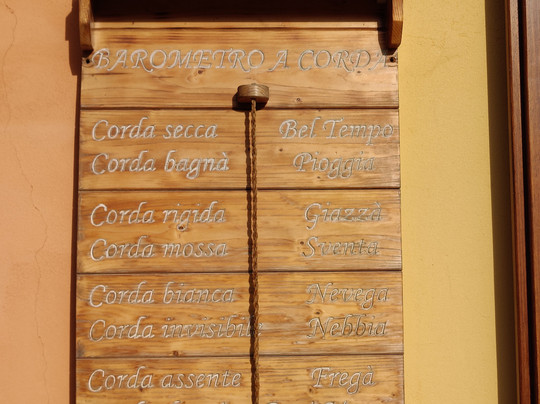 BAROMETRO A CORDA
Corda secca Bel Tempo
Corda bagnà Pioggia
Corda rigida Giazzà
Corda mossa Sventa
Corda bianca Nevega
Corda invisibile Nebbia
Corda assente Fregà